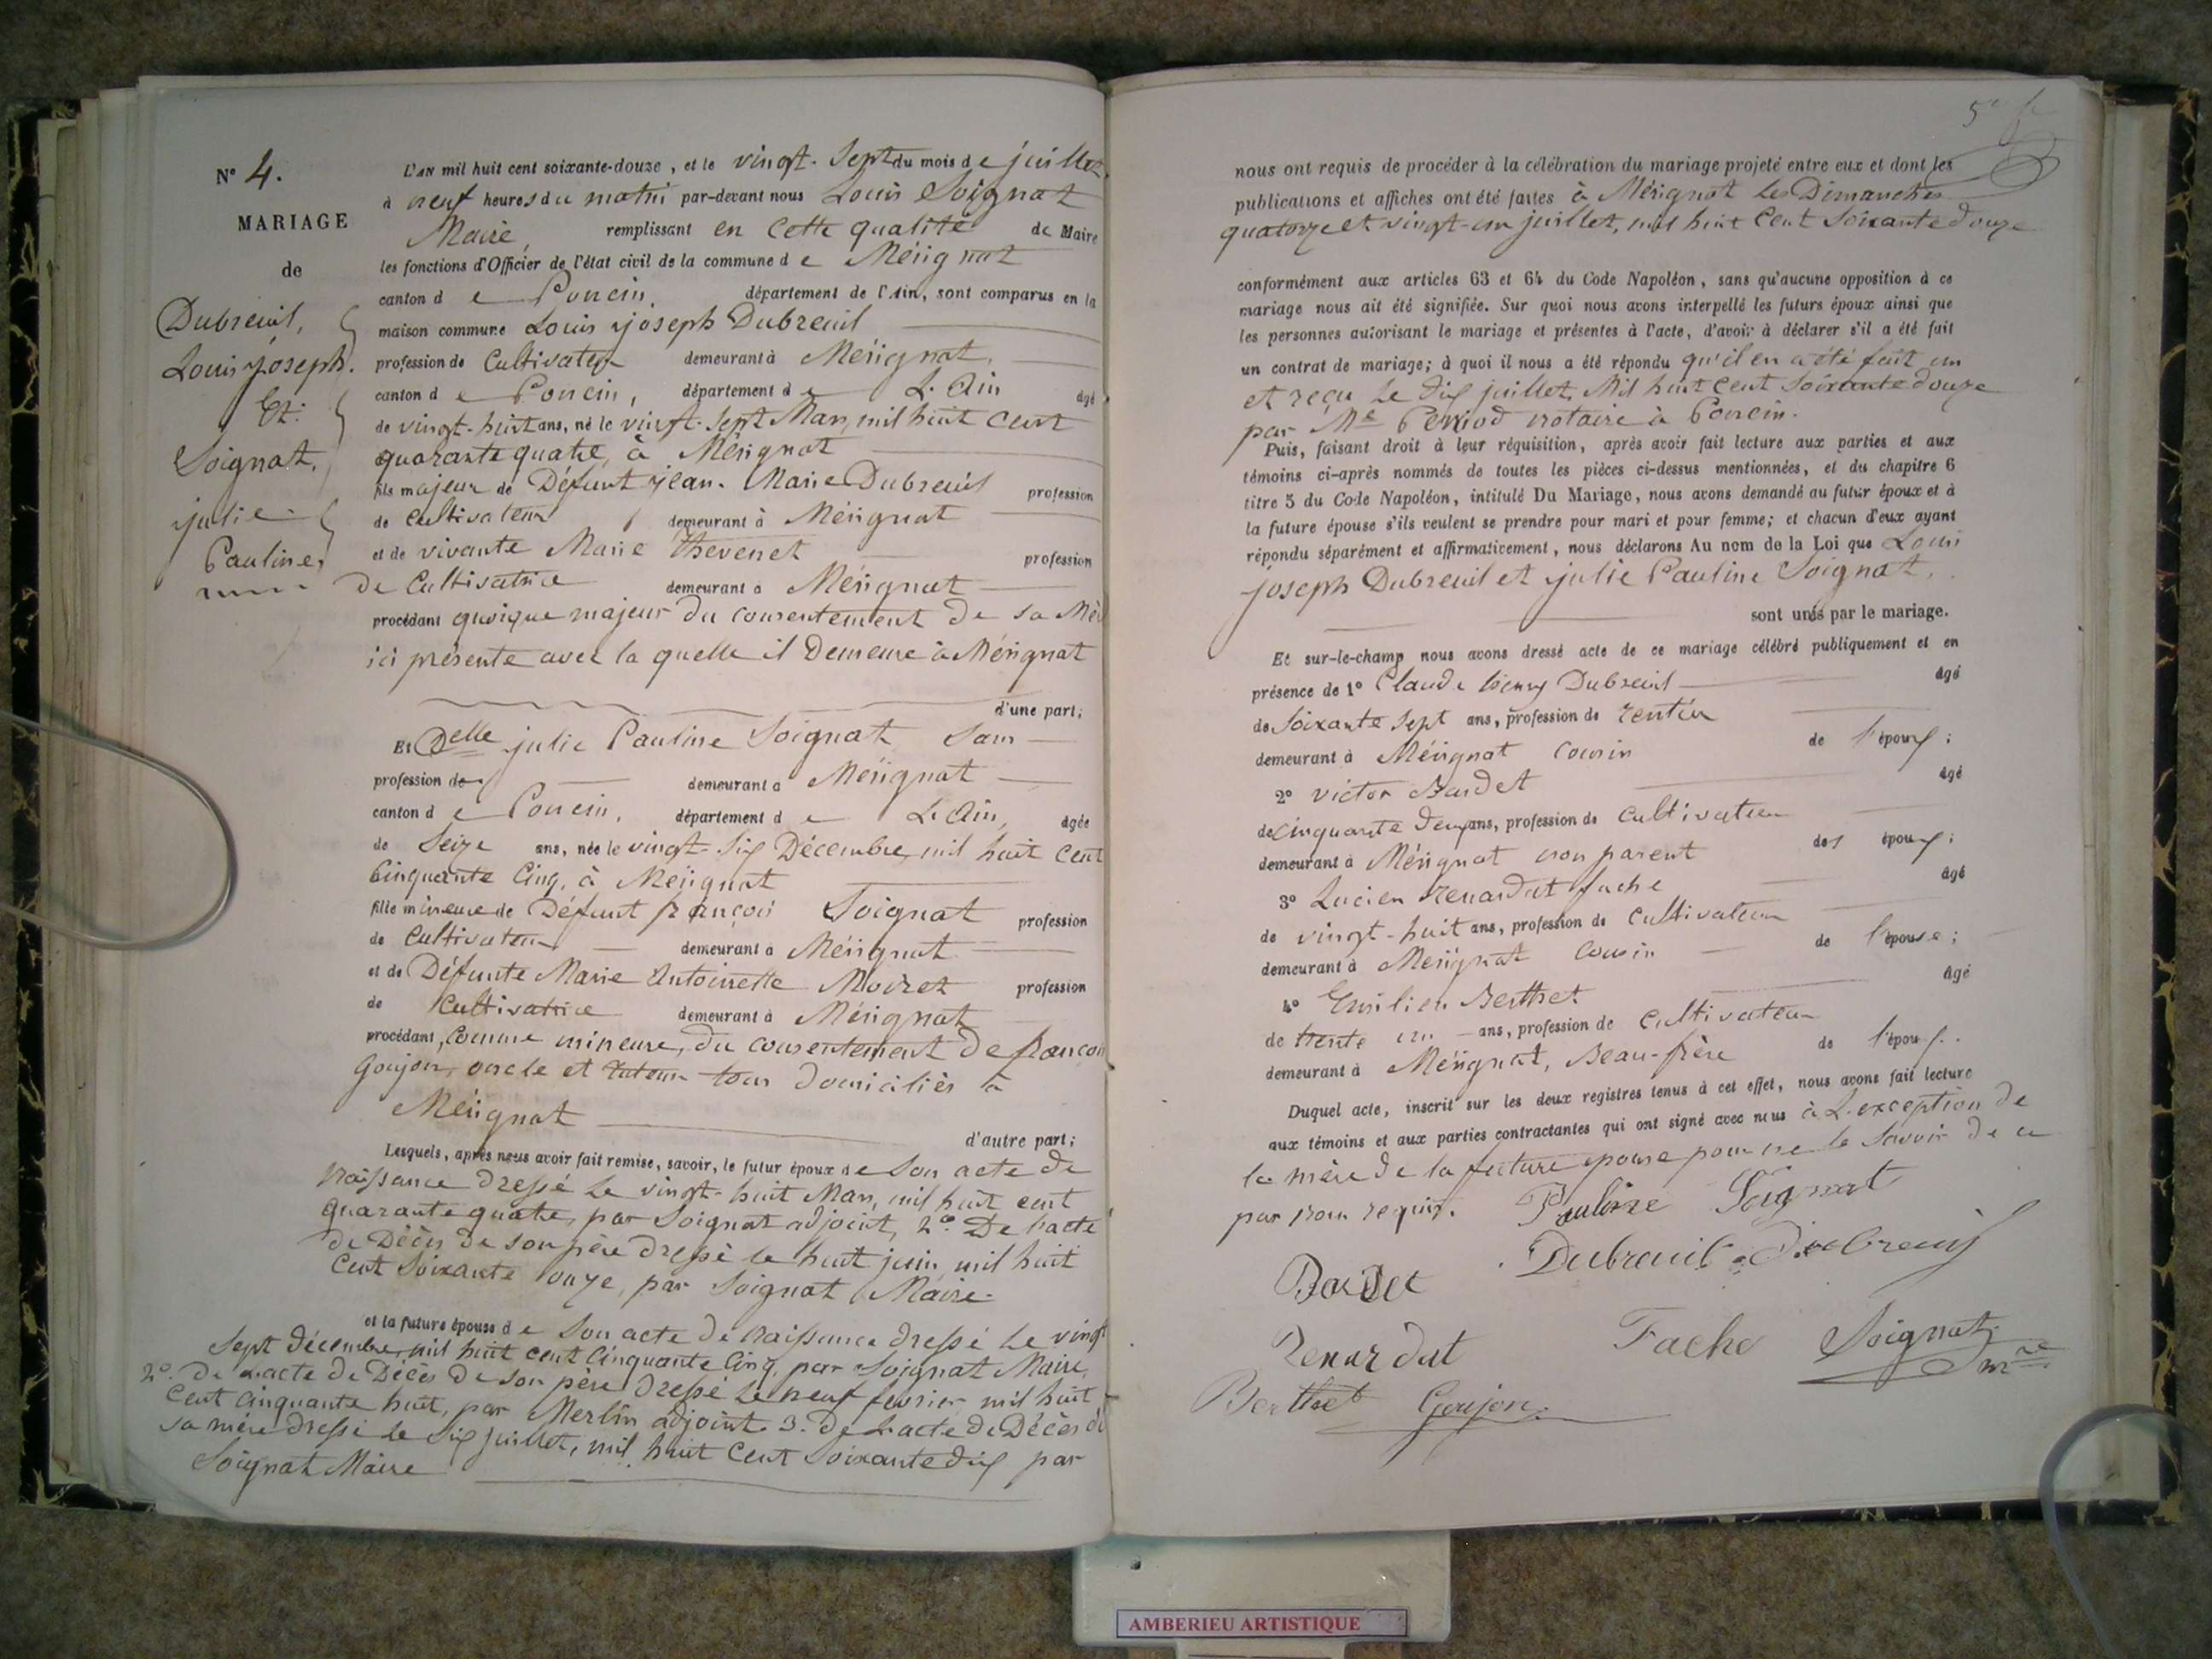 N° 4.
MARIAGE
de
Dubreuil,
Louis joseph.
Et.
Soignat,
julie
Pauline,
L'AN mil huit cent soixante-douze, et le vingt-sept du mois de juillet
à neuf heures du matin par-devant nous Louis Soignat
Maire, remplissant en cette qualité de Maire
les fonctions d'Officier de l'état civil de la commune de Mérignat
canton de Poncin, département de l'Ain, sont comparus en la
maison commune Louis joseph Dubreuil
profession de Cultivateur demeurant à Mérignat,
canton de Poncin, département de L'Ain âgé
de vingt-huit ans, né le vingt-sept Mars, mil huit cent
quarante quatre, à Mérignat
fils majeur de Défunt jean-Marie Dubreuil profession
de Cultivateur demeurant à Mérignat
et de vivante Marie thevenet profession
de Cultivatrice demeurant à Mérignat
procédant quoique majeur du consentement de sa Mère
ici présente avec la quelle il Demeure à Mérignat
d'une part;
Et Delle julie Pauline Soignat Sans
profession de demeurant à Mérignat
canton de Poncin, département de L'Ain, âgée
de Seize ans, née le vingt-six Décembre, mil huit cent
Cinquante Cinq, à Mérignat
fille mineure de Défunt françois Soignat profession
de Cultivateur demeurant à Mérignat
et de Défunte Marie Antoinette Moiret profession
de Cultivatrice demeurant à Mérignat
procédant, Comme mineure, du consentement de françois
Goujon, oncle et tuteur tous domiciliés à
Mérignat
d'autre part;
Lesquels, après nous avoir fait remise, savoir, le futur époux de Son acte de
naissance dressé le vingt-huit Mars, mil huit cent
quarante quatre, par Soignat adjoint, 2°. De l'acte
de Décès de son père dressé le huit juin mil huit
Cent Soixante onze, par Soignat Maire.
et la future épouse de Son acte de naissance dressé le vingt
Sept décembre, mil huit cent Cinquante Cinq, par Soignat Maire,
2°. De L'acte de Décès de son père dressé le neuf février mil huit
Cent Cinquante huit, par Merlin adjoint. 3. de L'acte de Décès de
sa mère dressé le six juillet, mil huit Cent Soixante dix par
Soignat Maire
nous ont requis de procéder à la célébration du mariage projeté entre eux et dont les
publications et affiches ont été faites à Mérignat les Dimanches
quatorze et vingt-un juillet, mil huit Cent Soixante douze
conformément aux articles 63 et 64 du Code Napoléon, sans qu'aucune opposition à ce
mariage nous ait été signifiée. Sur quoi nous avons interpellé les futurs époux ainsi que
les personnes autorisant le mariage et présentes à l'acte, d'avoir à déclarer s'il a été fait
un contrat de mariage; à quoi il nous a été répondu qu'il en a été fait un
et reçu Le dix juillet, Mil huit cent Soixante douze
par Me notaire à Poncin.
Puis, faisant droit à leur réquisition, après avoir fait lecture aux parties et aux
témoins ci-après nommés de toutes les pièces ci-dessus mentionnées, et du chapitre 6
titre 5 du Code Napoléon, intitulé Du Mariage, nous avons demandé au futur époux et à
la future épouse s'ils veulent se prendre pour mari et pour femme; et chacun d'eux ayant
répondu séparément et affirmativement, nous déclarons Au nom de la Loi que Louis
joseph Dubreuil et julie Pauline Soignat,
sont unis par le mariage.
Et sur-le-champ nous avons dressé acte de ce mariage célébré publiquement et en
présence de 1° Claude henry Dubreuil âgé
de Soixante sept ans, profession de rentier
demeurant à Mérignat cousin de l'époux;
2° victor Bardet âgé
de Cinquante deux ans, profession de Cultivateur
demeurant à Mérignat non parent des époux;
3° Lucien Renardat fache âgé
de vingt-huit ans, profession de Cultivateur
demeurant à Mérignat Cousin de l'épouse;
4° Emilien Berthet âgé
de trente un ans, profession de Cultivateur
demeurant à Mérignat, Beau-frère de l'époux.
Duquel acte, inscrit sur les deux registres tenus à cet effet, nous avons fait lecture
aux témoins et aux parties contractantes qui ont signé avec nous à L'exception de
la mère de la future épouse pour ne le savoir de ce
par nous requis. Pauline Soignat
Bardet Dubreuil Dubreuil
Renardat Fache Soignat
mre
Berthet Goujon
AMBERIEU ARTISTIQUE